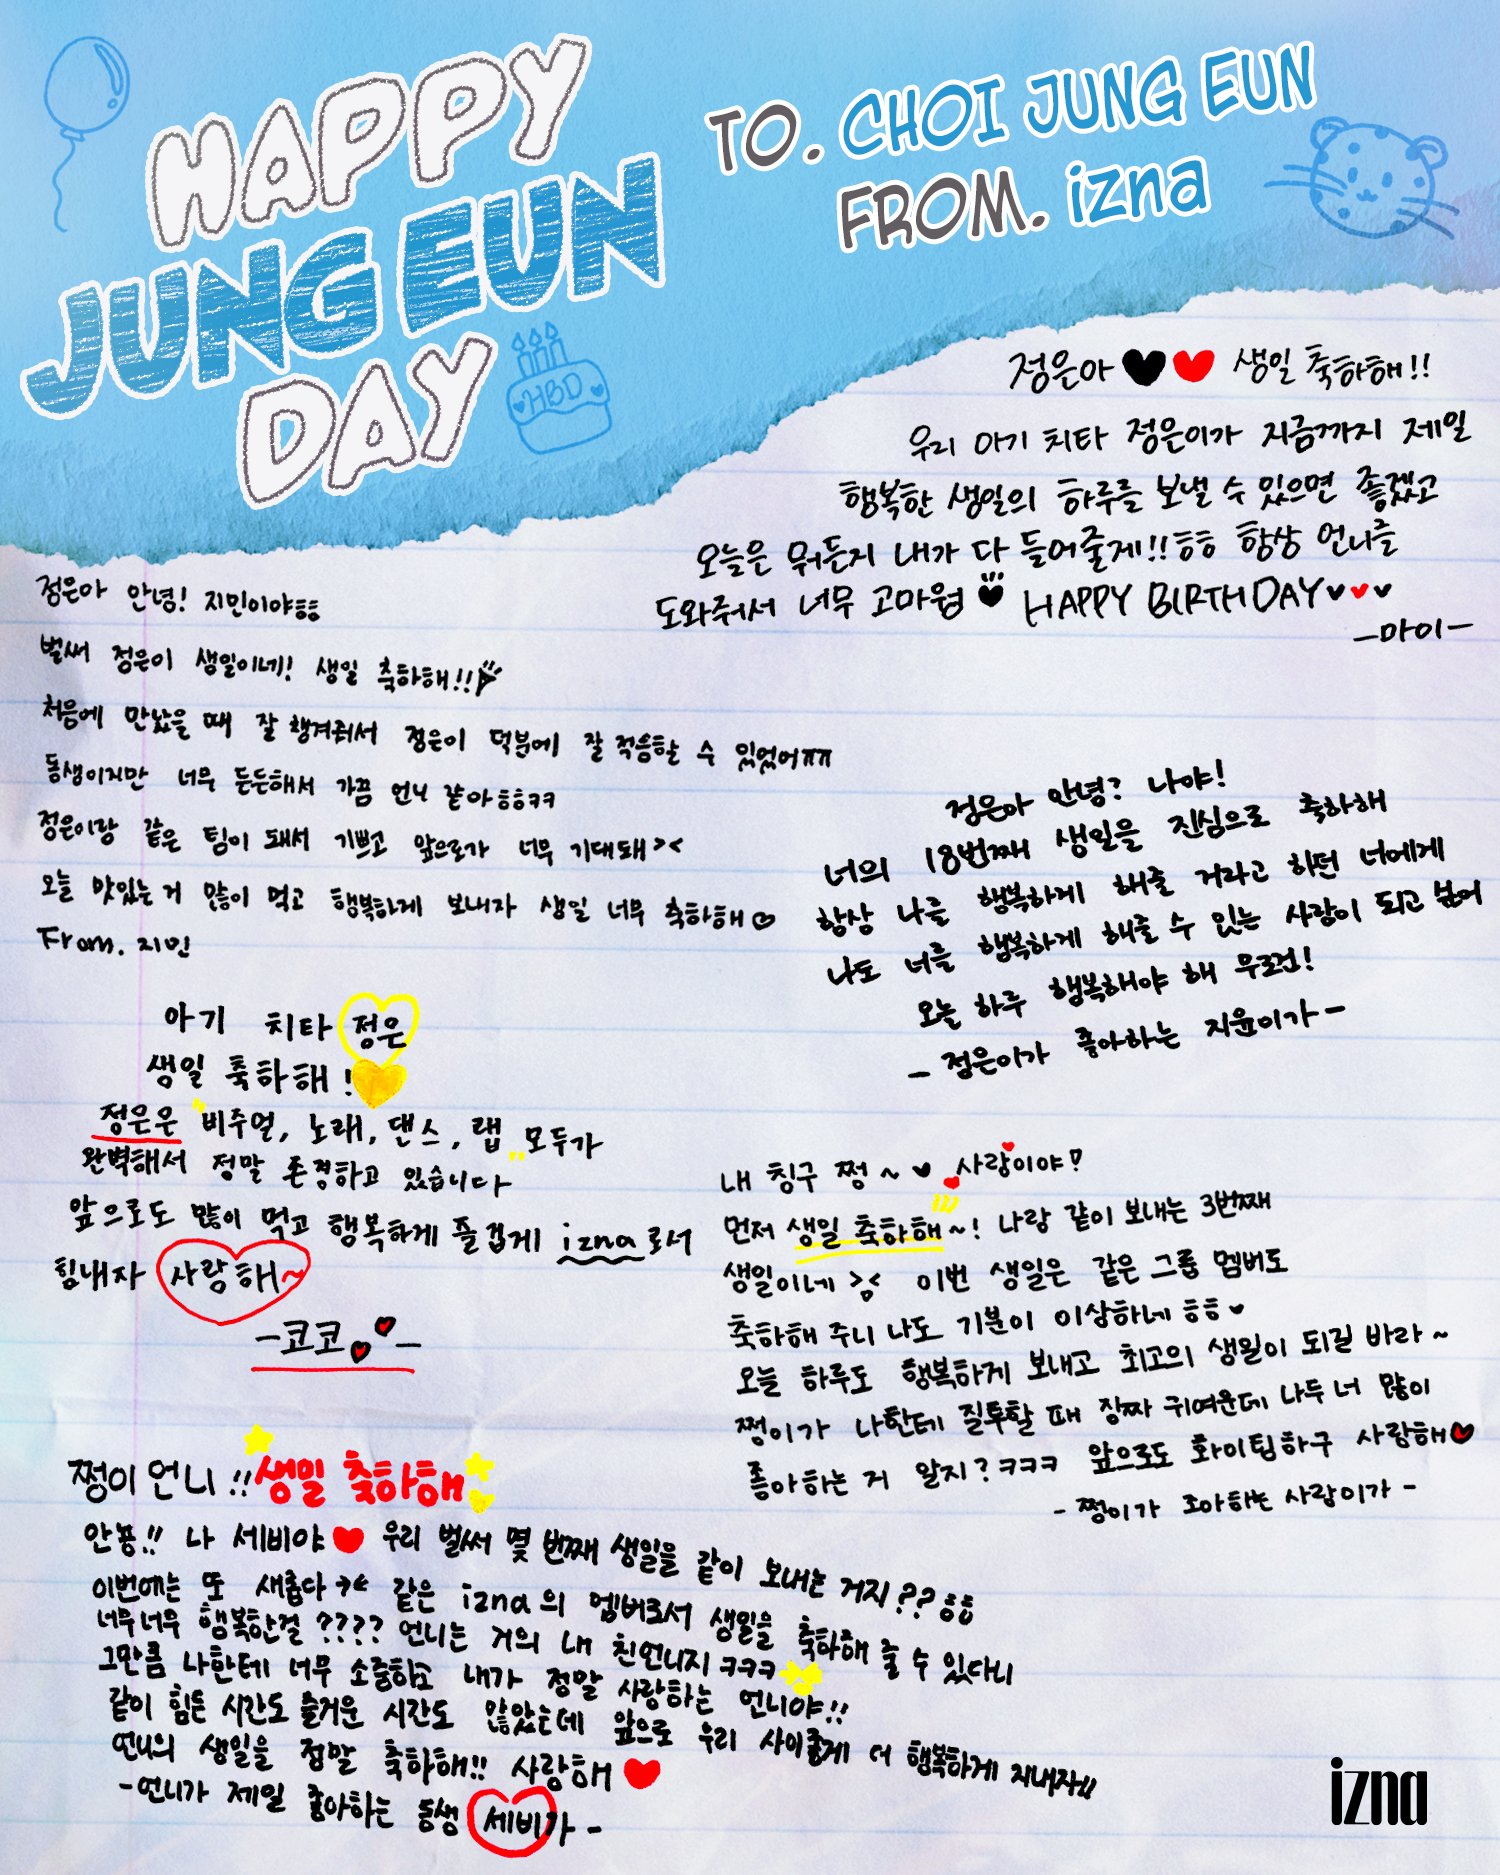 HAPPY
JUNG EUN
DAY
HBD
TO. CHOI JUNG EUN
FROM. izna
정은아 생일 축하해!!
우리 아기 치타 정은이가 지금까지 제일
행복한 생일의 하루를 보낼 수 있으면 좋겠고
오늘은 뭐든지 내가 다 들어줄게!!ㅎㅎ 항상 언니를
도와줘서 너무 고마웡 HAPPY BIRTHDAY
-마이-
정은아 안녕! 지민이야ㅎㅎ
벌써 정은이 생일이네! 생일 축하해!!
처음에 만났을 때 잘 챙겨줘서 정은이 덕분에 잘 적응할 수 있었어ㅠㅠ
동생이지만 너무 든든해서 가끔 언니 같아ㅎㅎㅋㅋ
정은이랑 같은 팀이 돼서 기쁘고 앞으로가 너무 기대돼><
오늘 맛있는 거 많이 먹고 행복하게 보내자 생일 너무 축하해♡
From. 지민
정은아 안녕? 나야!
너의 18번째 생일을 진심으로 축하해
항상 나를 행복하게 해줄 거라고 하던 너에게
나도 너를 행복하게 해줄 수 있는 사람이 되고 싶어
오늘 하루 행복해야 해 무조건!
- 정은이가 좋아하는 지윤이가 -
아기 치타 정은
생일 축하해!
정은은 "비주얼, 노래, 댄스, 랩" 모두가
완벽해서 정말 존경하고 있습니다
앞으로도 많이 먹고 행복하게 즐겁게 izna로서
힘내자 사랑해~
-코코-
내 칭구 쩡~♥ 사랑이야?
먼저 생일 축하해~! 나랑 같이 보내는 3번째
생일이네 >< 이번 생일은 같은 그룹 멤버도
축하해 주니 나도 기분이 이상하네 ㅎㅎ♥
오늘 하루도 행복하게 보내고 최고의 생일이 되길 바라~
쩡이가 나한테 질투할 때 장짜 귀여운데 나두 너 많이
좋아하는 거 알지?ㅋㅋㅋ 앞으로도 화이팅하구 사랑해♥
- 쩡이가 조아하는 사랑이가 -
쩡이 언니!! 생일 축하해
안뇽!! 나 세비야♥ 우리 벌써 몇 번째 생일을 같이 보내는 거지??ㅎㅎ
이번에는 또 새롭다>< 같은 izna의 멤버로서 생일을 축하해 줄 수 있다니
너무너무 행복한걸???? 언니는 거의 내 친언니지ㅋㅋㅋ
그만큼 나한테 너무 소중하고 내가 정말 사랑하는 언니야!!
같이 힘든 시간도 즐거운 시간도 많았는데 앞으로 우리 사이좋게 더 행복하게 지내자!!
언니의 생일을 정말 축하해!! 사랑해♥
-언니가 제일 좋아하는 동생 세비가-
izna